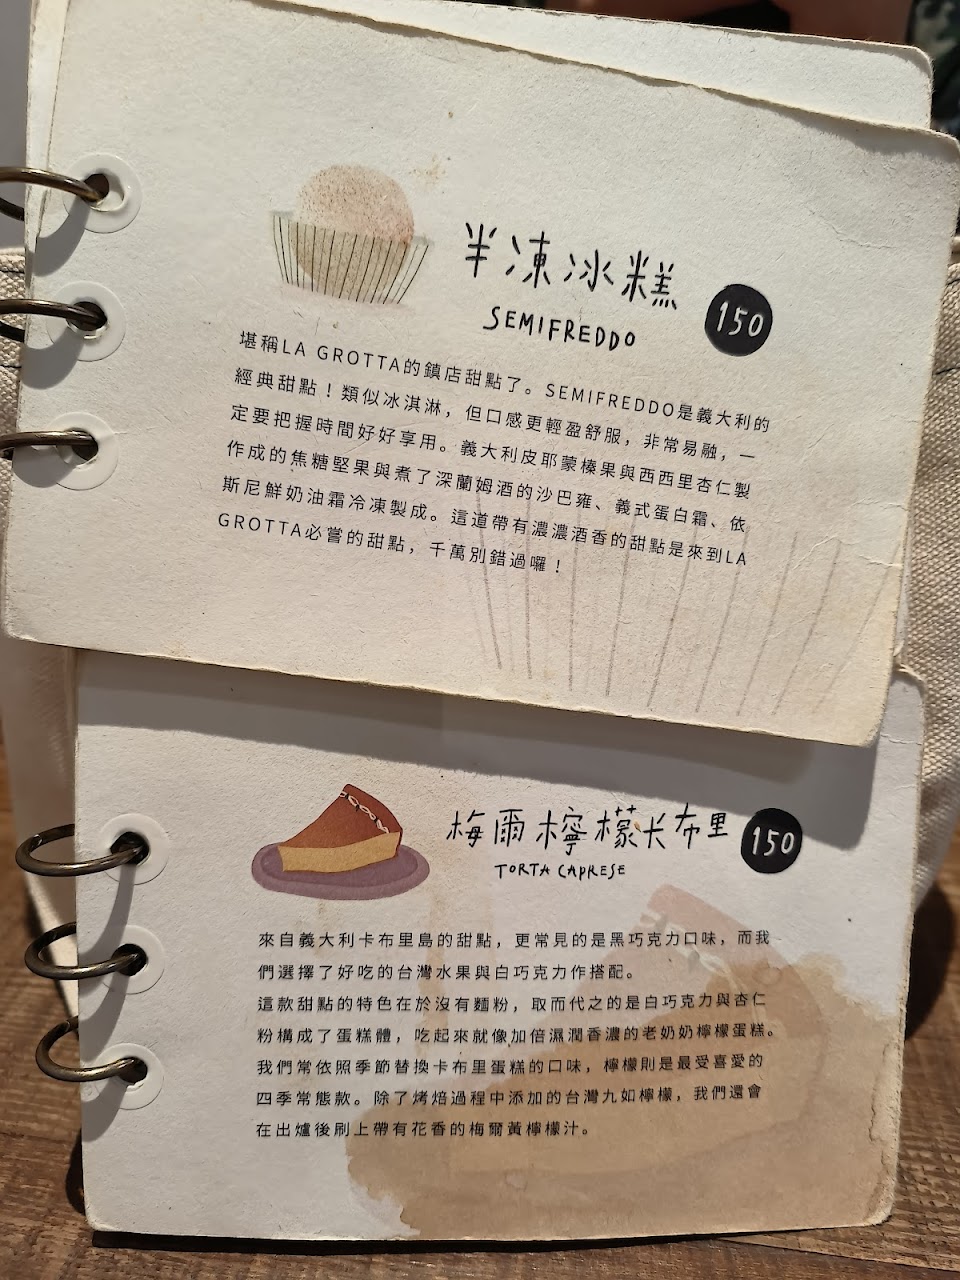 半凍冰糕
SEMIFREDDO
150
堪稱LA GROTTA的鎮店甜點了。SEMIFREDDO是義大利的
經典甜點！類似冰淇淋，但口感更輕盈舒服，非常易融，一
定要把握時間好好享用。義大利皮耶蒙榛果與西西里杏仁製
作成的焦糖堅果與煮了深蘭姆酒的沙巴雍、義式蛋白霜、依
斯尼鮮奶油霜冷凍製成。這道帶有濃濃酒香的甜點是來到LA
GROTTA必嘗的甜點，千萬別錯過囉！
梅爾檸檬卡布里
TORTA CAPRESE
150
來自義大利卡布里島的甜點，更常見的是黑巧克力口味，而我
們選擇了好吃的台灣水果與白巧克力作搭配。
這款甜點的特色在於沒有麵粉，取而代之的是白巧克力與杏仁
粉構成了蛋糕體，吃起來就像加倍濕潤香濃的老奶奶檸檬蛋糕。
我們常依照季節替換卡布里蛋糕的口味，檸檬則是最受喜愛的
四季常態款。除了烤焙過程中添加的台灣九如檸檬，我們還會
在出爐後刷上帶有花香的梅爾黃檸檬汁。